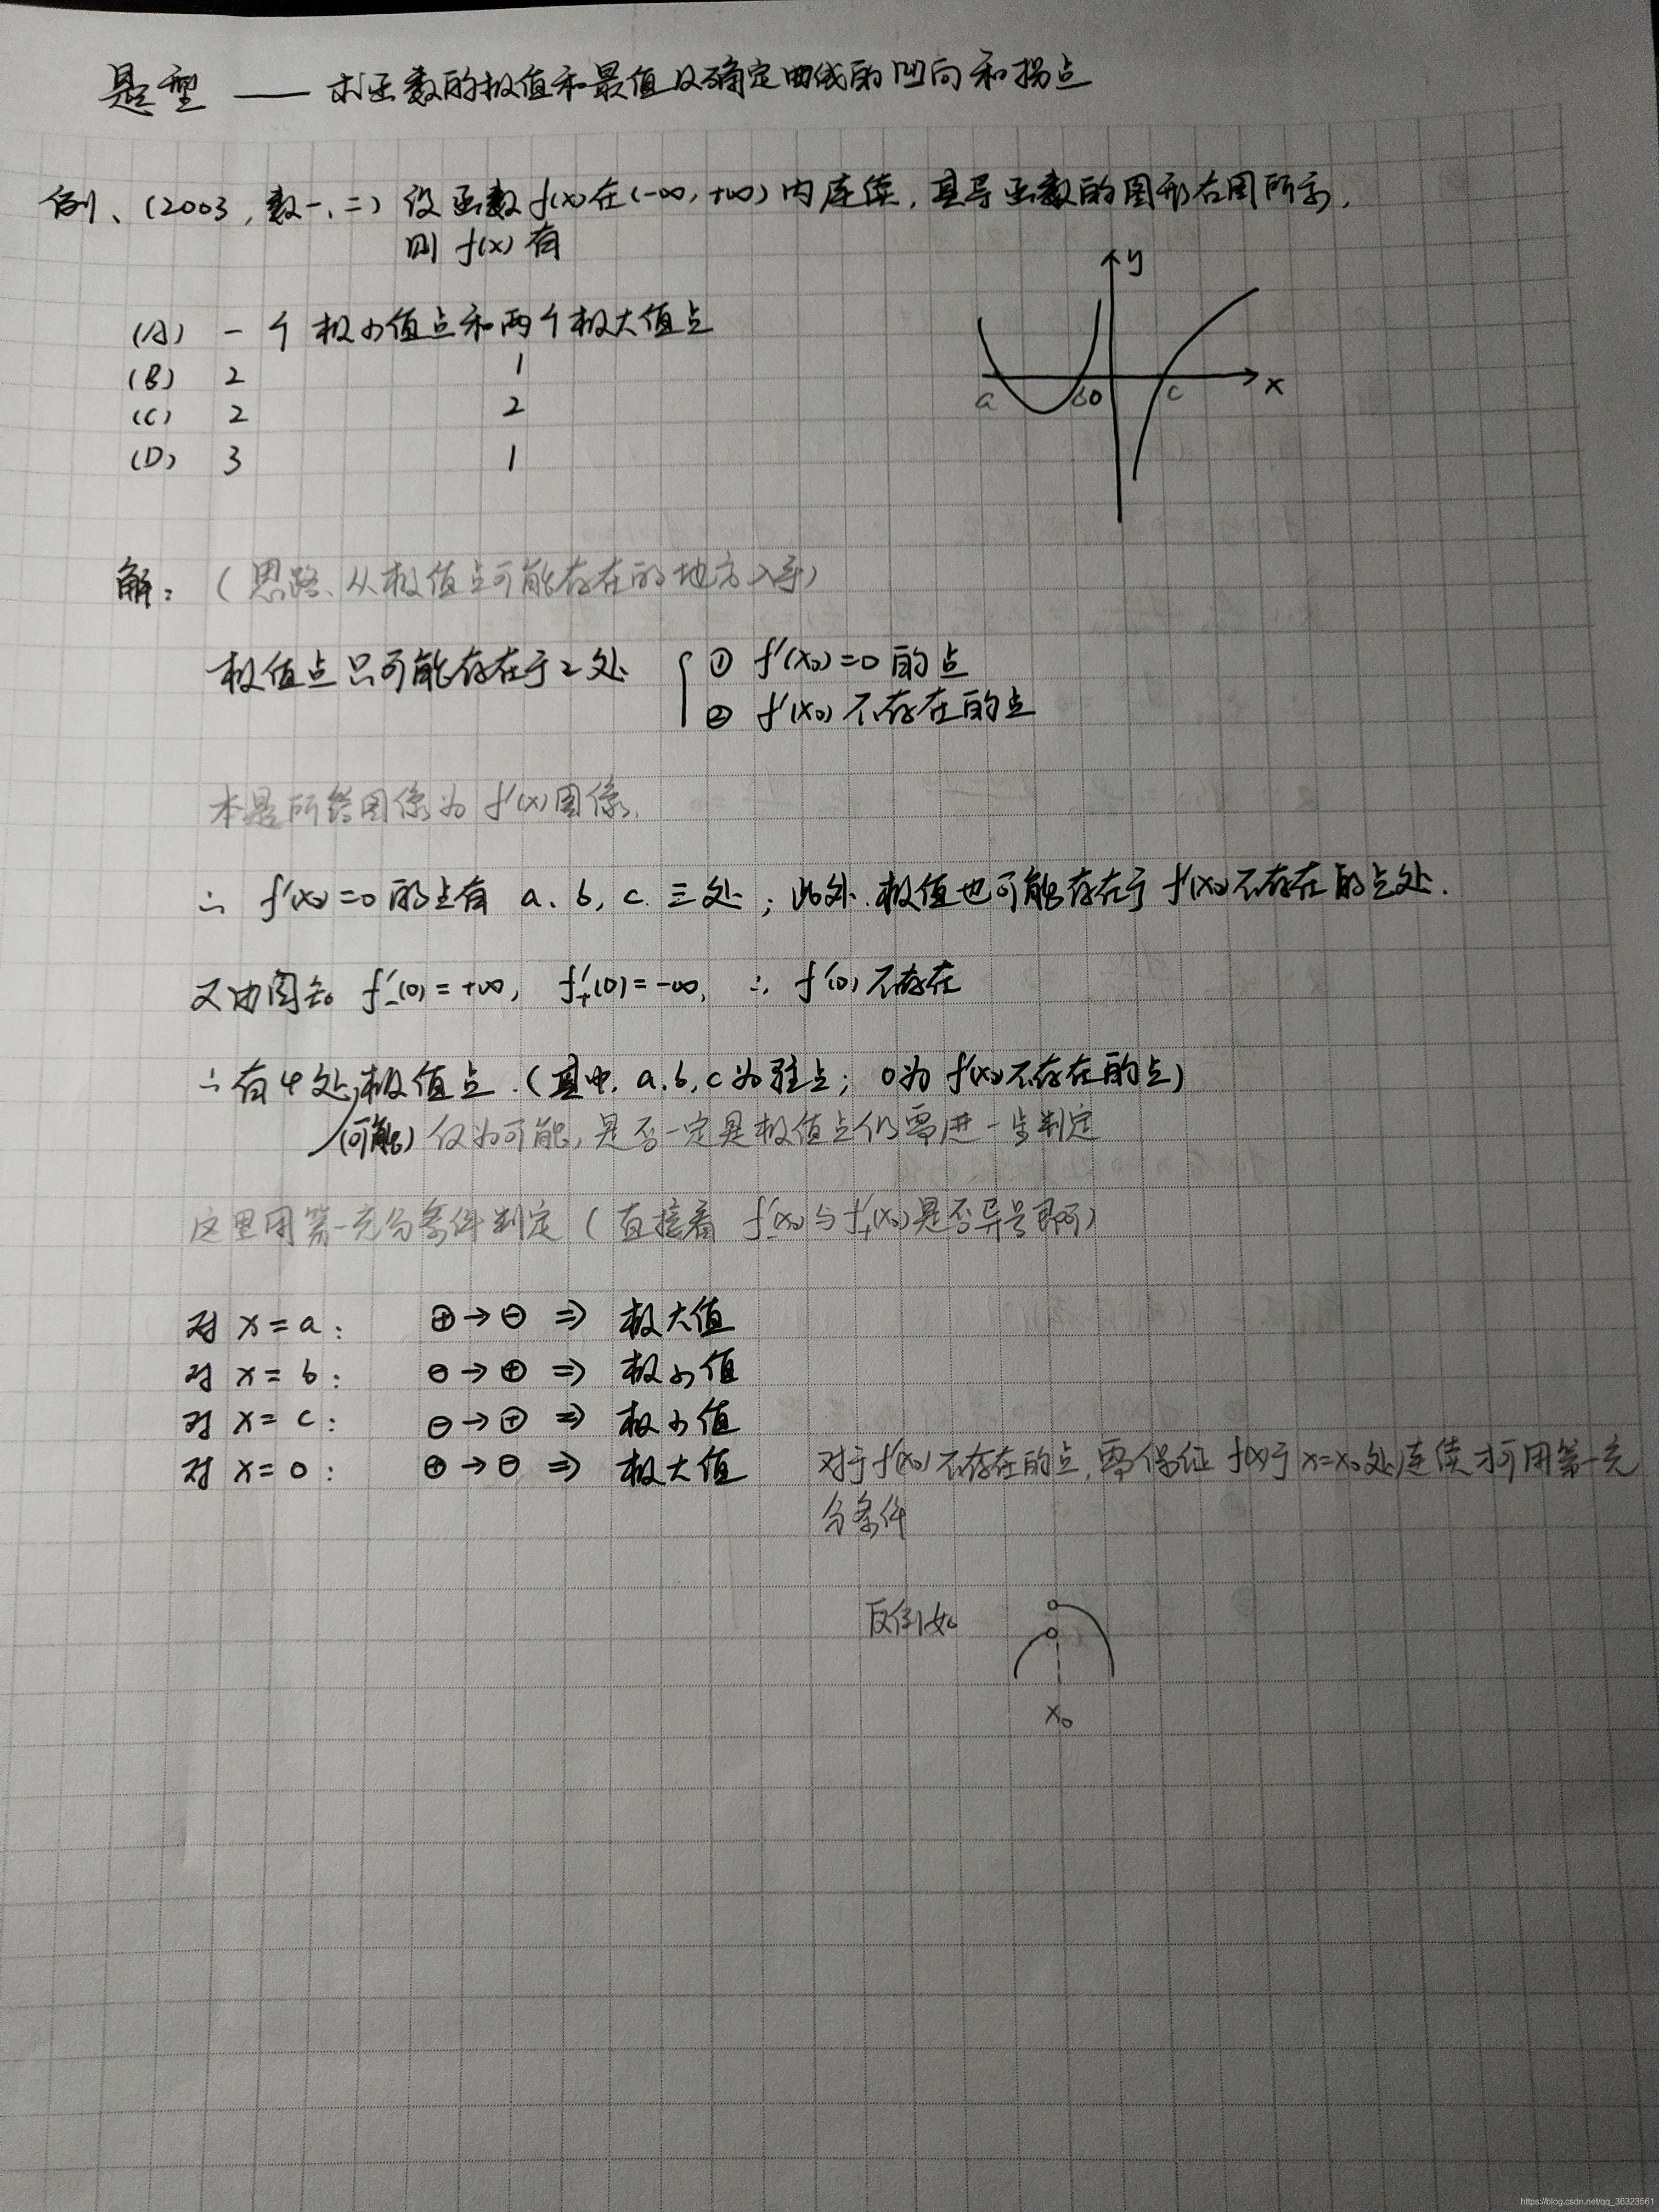 题型 —— 求函数的极值和最值及确定曲线的凹向和拐点
例、(2003,数一、二) 设函数f(x)在(-∞,+∞)内连续,其导函数的图形右图所示,
则 f(x) 有
(A) 一个极小值点和两个极大值点
(B) 2 1
(C) 2 2
(D) 3 1
y
a b 0 c x
解: (思路、从极值点可能存在的地方入手)
极值点只可能存在于2处 { ① f'(x₀)=0 的点
② f'(x₀) 不存在的点
本题所给图像为 f'(x)图像,
∴ f'(x)=0 的点有 a、b, c 三处; 此外,极值也可能存在于 f'(x)不存在的点处.
又由图知 f'₋(0)=+∞, f'₊(0)=-∞, ∴ f'(0)不存在
∴ 有4处极值点.(其中, a,b,c为驻点; 0为 f'(x)不存在的点)
(可能) 仅为可能,是否一定是极值点仍需进一步判定
这里用第一充分条件判定(直接看 f'₋(x₀)与f'₊(x₀)是否异号即可)
对 x=a: ⊕→⊖ ⇒ 极大值
对 x=b: ⊖→⊕ ⇒ 极小值
对 x=c: ⊖→⊕ ⇒ 极小值
对 x=0: ⊕→⊖ ⇒ 极大值
对于f'(x₀)不存在的点,需保证 f(x)于x=x₀处连续才可用第一充
分条件
反例如
x₀
https://blog.csdn.net/qq_36323561